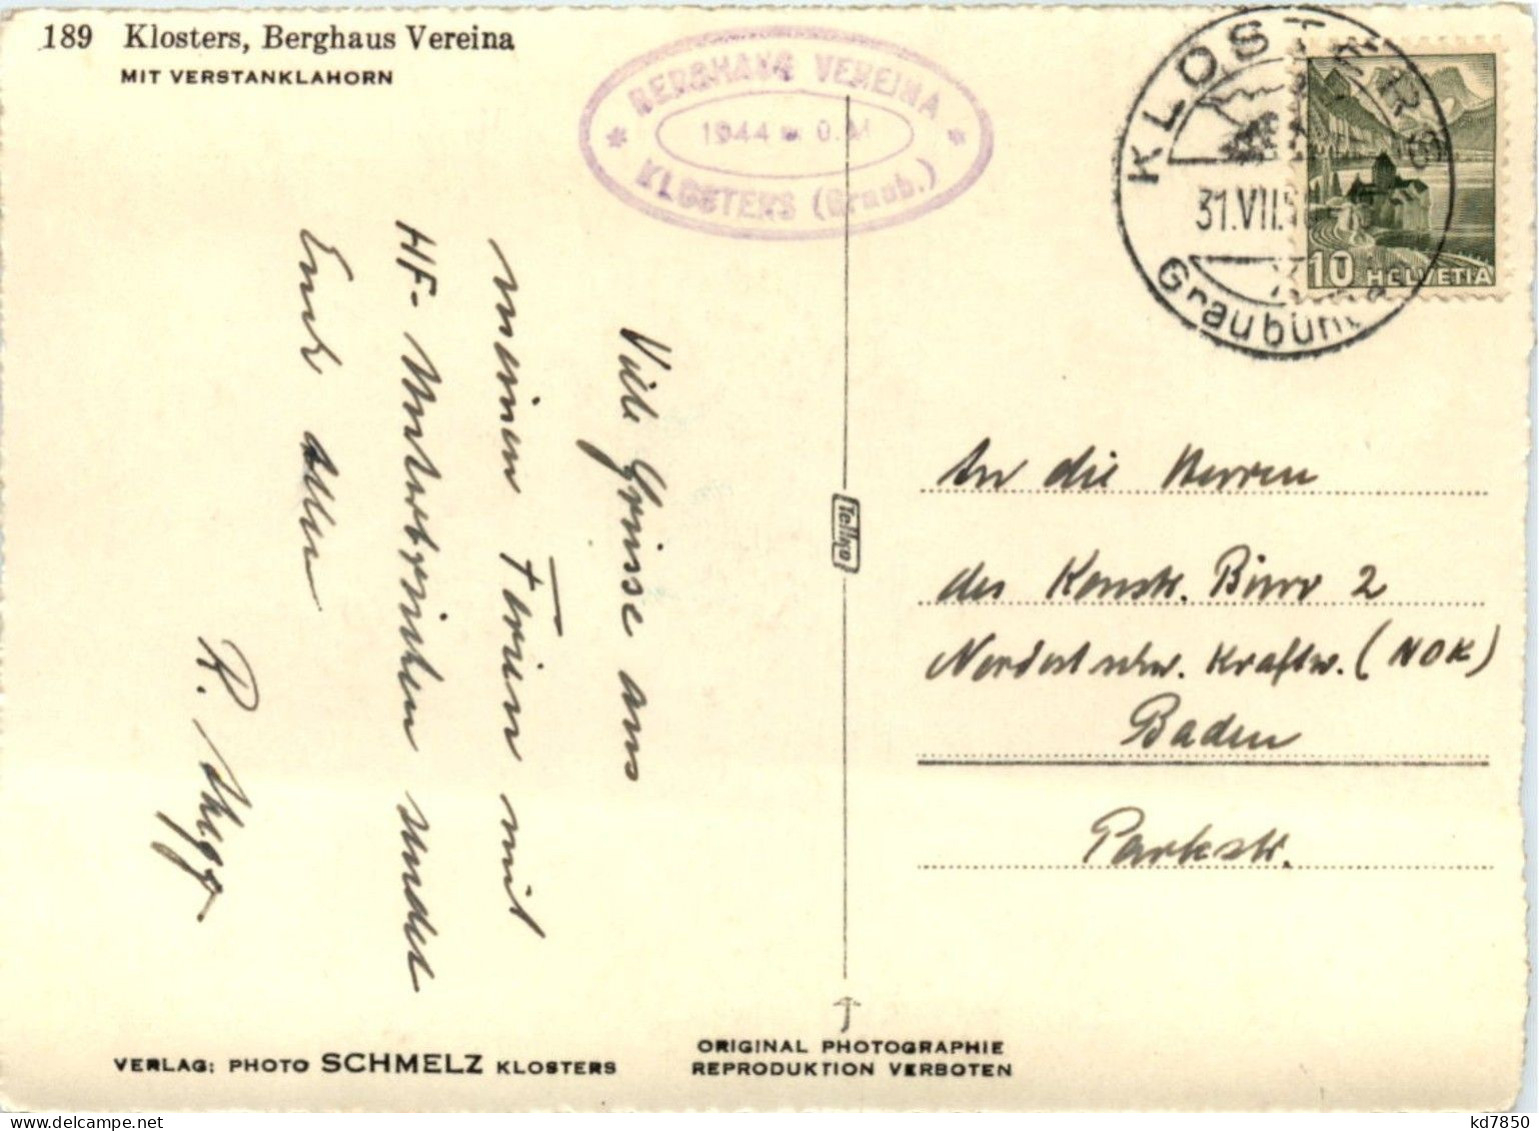 189 Klosters, Berghaus Vereina
MIT VERSTANKLAHORN
BERGHAUS VEREINA
1944 m ü.M
KLOSTERS (Graub.)
KLOSTERS
31.VII.
Graubün
10 HELVETIA
Viele Grüsse aus
meinen Ferien mit
HF- Unterbrüchen sendet
Euch allen
R.
Tellko
An die Herren
des Konstr. Büro 2
Nordostschw. Kraftw. (NOK)
Baden
Parkstr.
VERLAG: PHOTO SCHMELZ KLOSTERS
ORIGINAL PHOTOGRAPHIE
REPRODUKTION VERBOTEN
kd7850